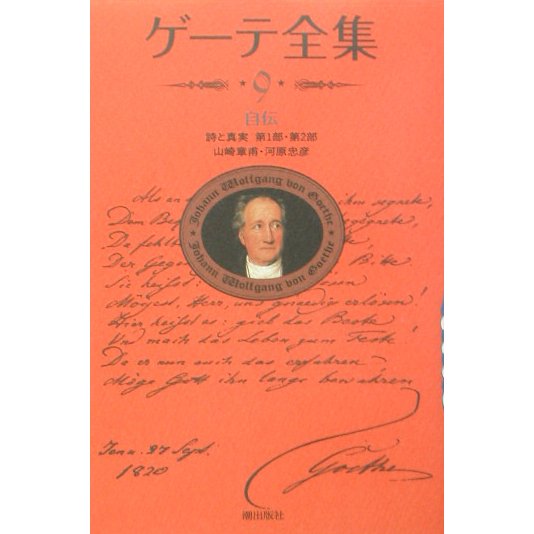 ゲーテ全集
9
自伝
詩と真実 第1部・第2部
山崎章甫・河原忠彦
Johann Wolfgang von Goethe
Johann Wolfgang von Goethe
Als er ihm segnete,
Dem
Da fehlt
Der Gegen Bitte
Sie heisst:
Möge Herr, und gnaedig erlösen!
Hier heisst es: gieb das Beste
Und mach das Leben zum Feste!
Da er nun auch das erfahren
Möge Gott ihn lange bewahren
Jena. 27 Sept.
1820
Goethe
潮出版社